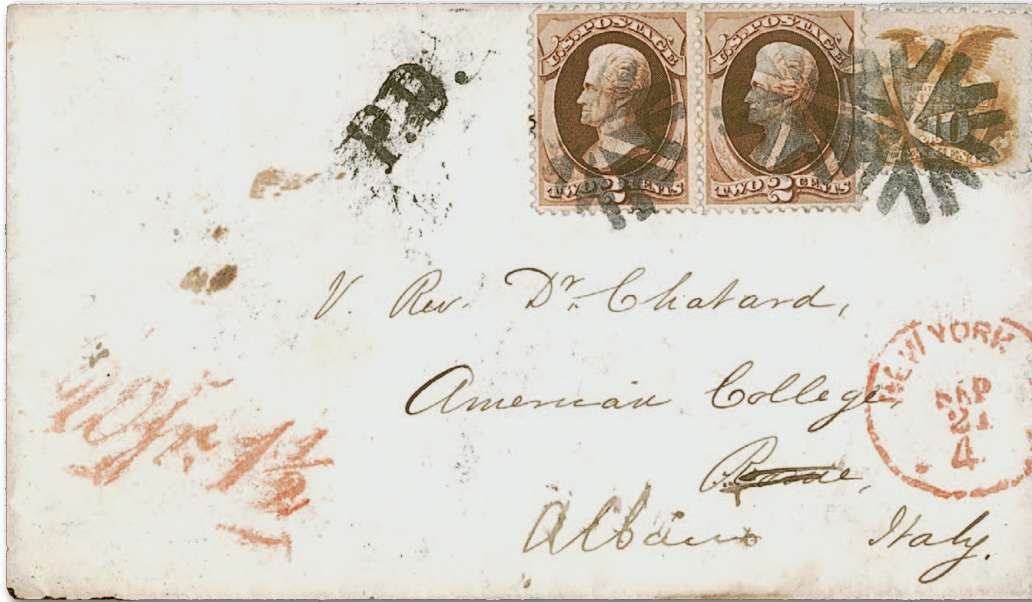 U.S. POSTAGE
TWO 2 CENTS
U.S. POSTAGE
TWO 2 CENTS
10
P.D.
V. Rev. Dr. Chatard,
American College,
Rome,
Albano Italy.
NEW YORK
SEP
21
4